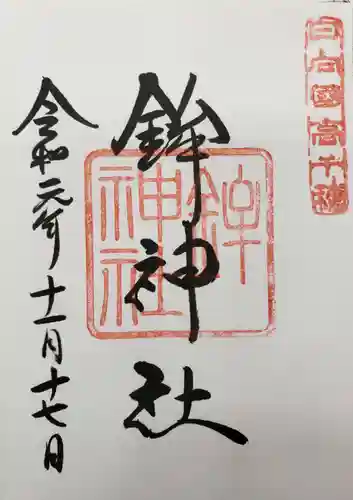 日向國高千穂
鉾神社
鉾
神社
令和元年十一月十七日